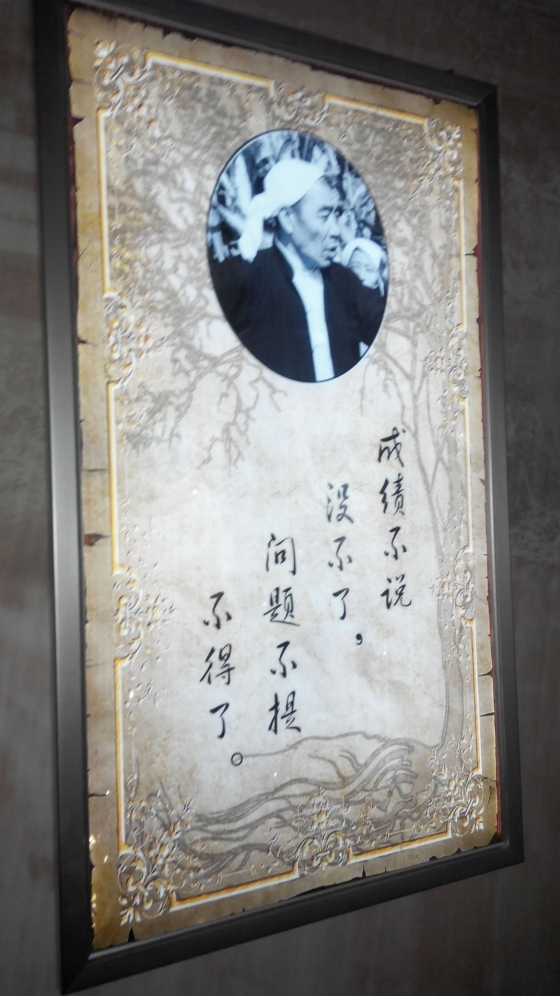 成绩不说
没不了，
问题不提
不得了。